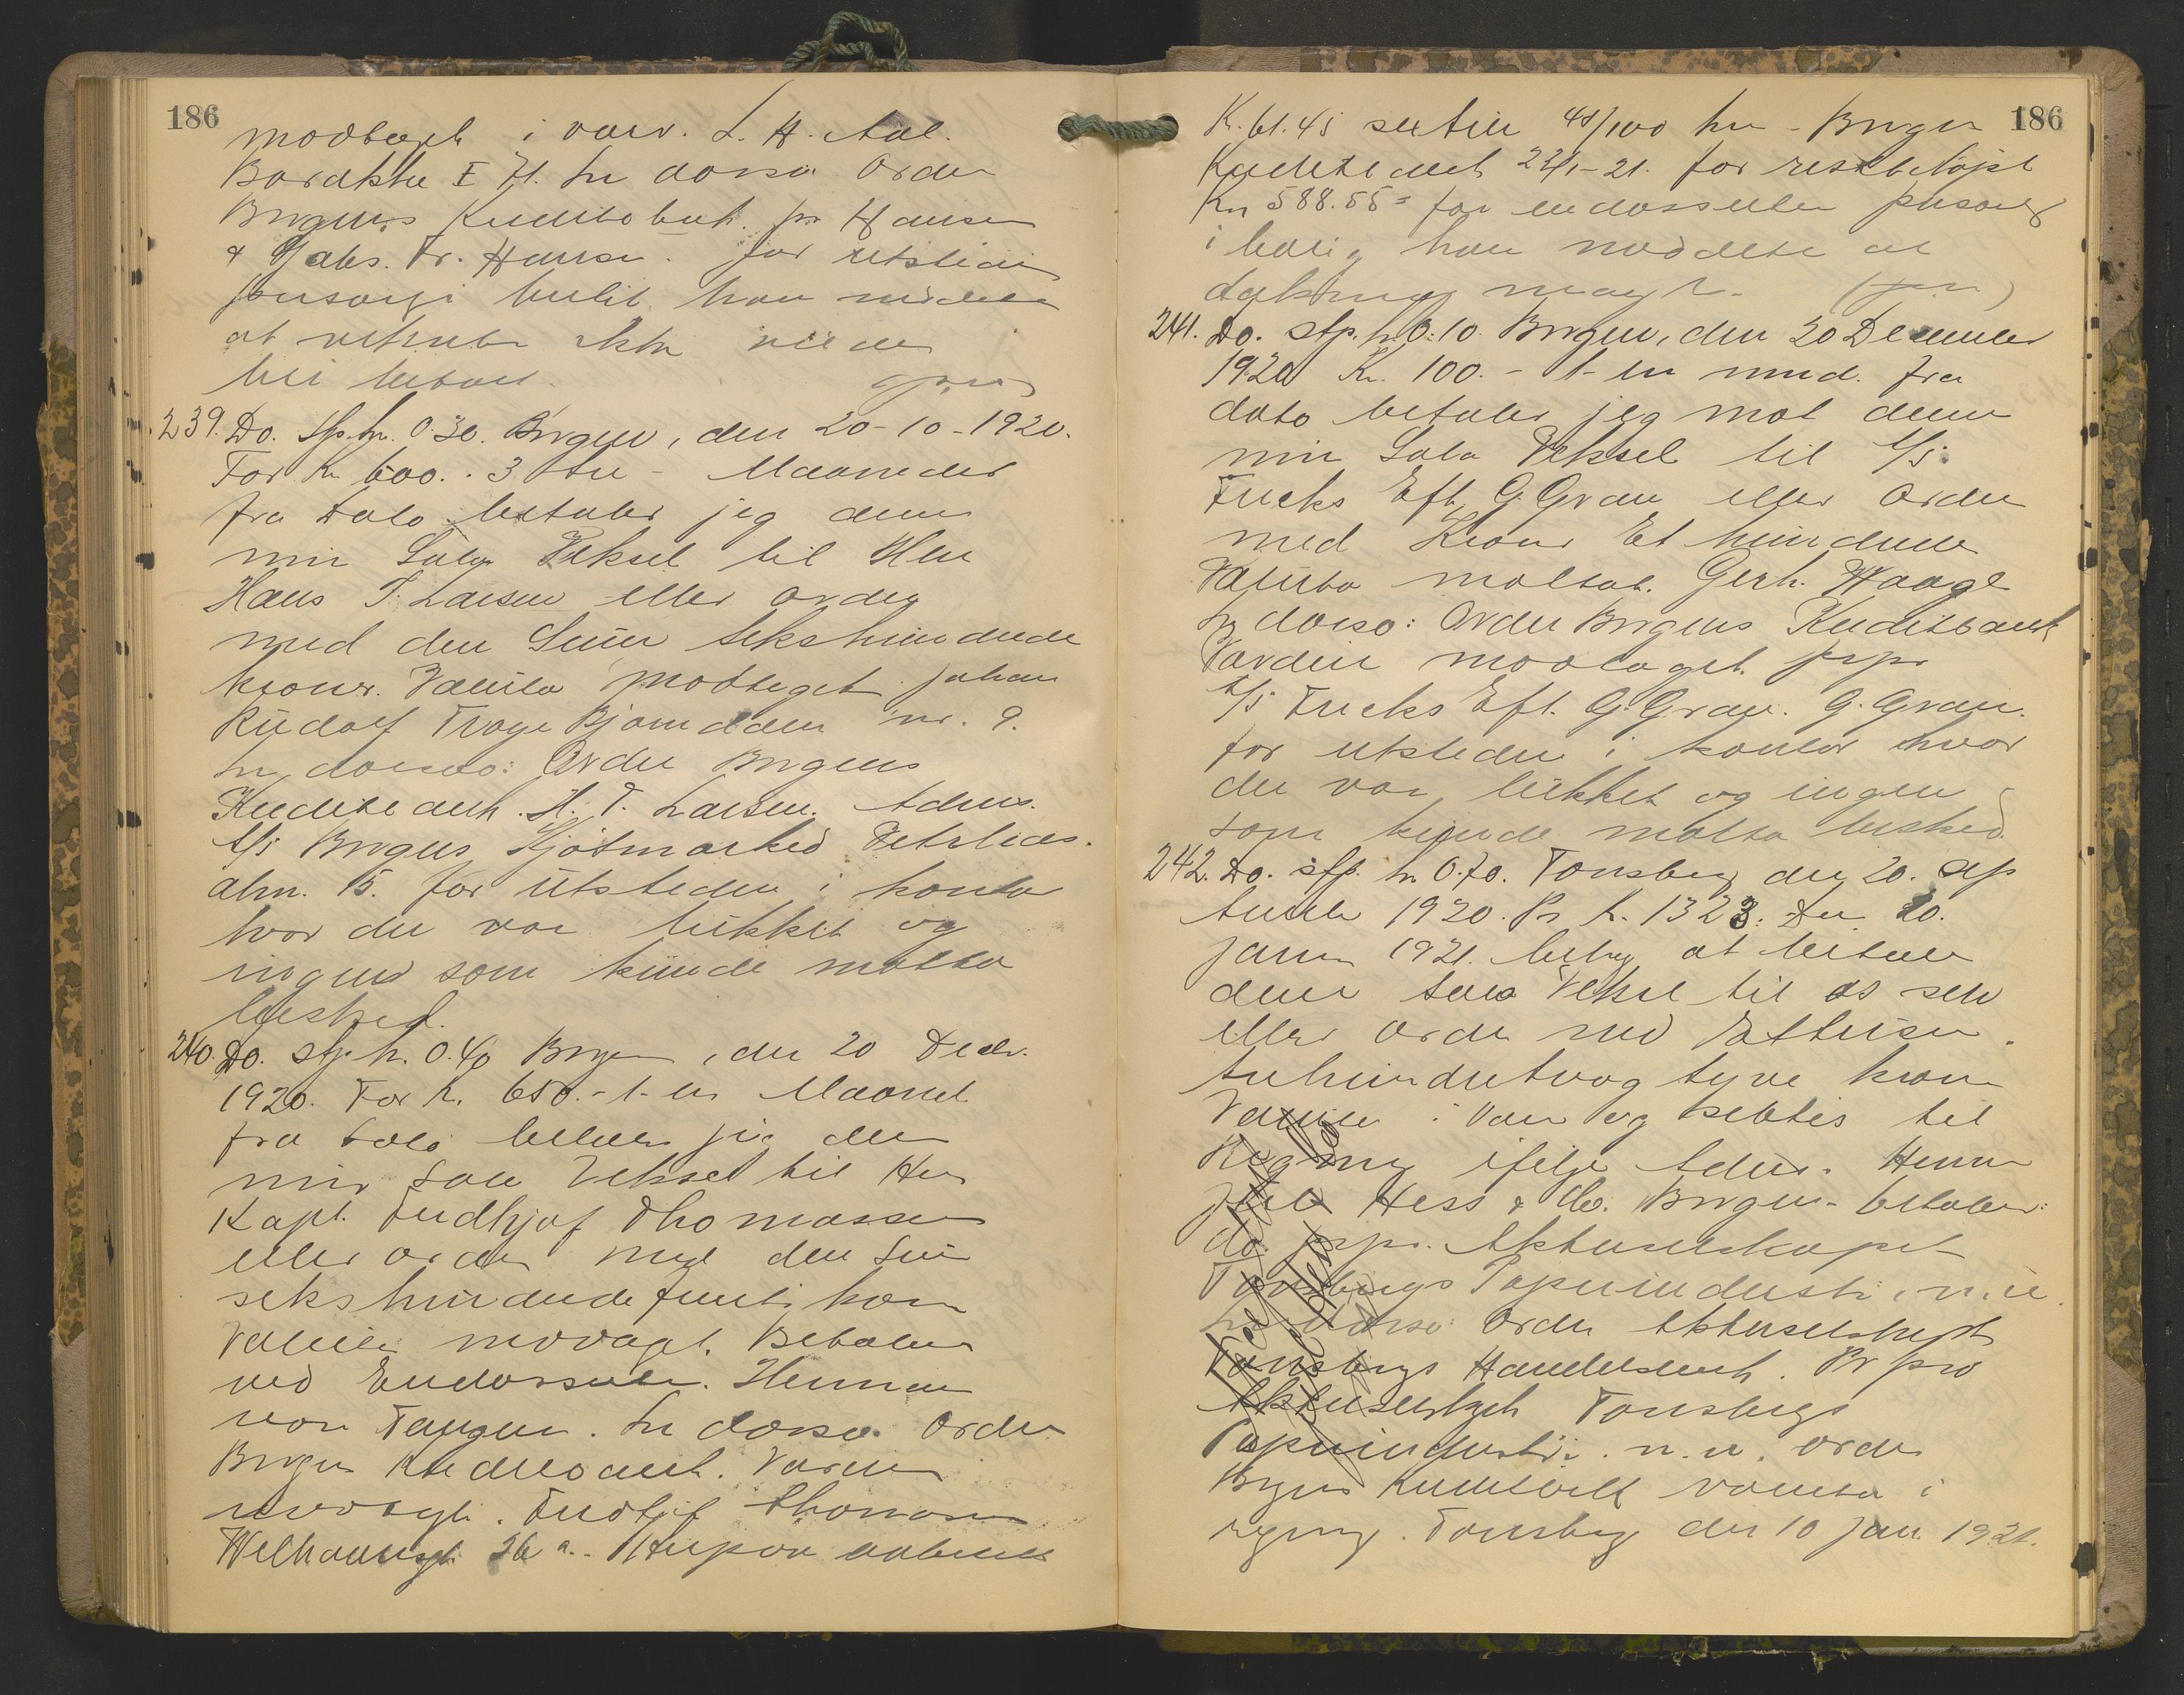 186
modtaget i varer. L. H. Aal.
In dorso Order
Bergens Kreditbank. for Hansen
& Jabs. Fr. Hansen. for utstederen
personlig han
at ikke
bli betalt.
239. Do. Stp. kr. 0.30. Bergen, den 20-10-1920.
For Kr 600.- 3 tre - Maaneder
fra Dato betaler jeg denne
min Sola Veksel til Herr
Hans T. Larsen eller order
med den Sum sekshundrede
kroner. Valuta modtaget. Johan
Rudolf Troye nr. 9.
In dorso: Order Bergens
Kreditbank. H. T. Larsen. Adres.
A/S Bergens Kjøtmarked Vetrlids-
alm. 15. for Utstederen i kontor
hvor der var lukket og
ingen som kunde motta
besked.
240. Do. stp. kr. 0.40 Bergen, den 20 Decbr.
1920. For kr. 650.- 1- en Maaned
fra Dato betaler jeg denne
min Sola Veksel til Herr
Kapt. Fridthjof Thomassen
eller order med den Sum
sekshundrede femti kroner
Valuta modtaget. Betales
ved Endossenten. Herman
von Tangen. In dorso. Order
Bergens Kreditbank. Værdien
modtaget. Fridtjof Thomassen
Welhavensgt. 26 a.- Herpaa avbetalt
186
Kr. 61.45 sekstien 45/100 kr - Bergens
Kreditbank 22/1-21. for restbeløpet
Kr. 588.55 = for endossenten personlig
i bolig han meddelte at
dækning (jen)
241. Do. stp. kr. 0.10. Bergen, den 20 December
1920 Kr. 100.- 1- en mnd. fra
dato betaler jeg mot denne
min Sola Veksel til A/S
Fucks Eft. G. Gran eller order
med Kroner Et hundrede
Valuta mottat. Gerh. Waage
In dorso: Order Bergens Kreditbank
Værdien modtaget. prpr
A/S Fucks Eft. G. Gran. G. Gran.
for utstederen i kontor hvor
der var lukket og ingen
som kunde motta besked.
242. Do. stp. kr. 0.70. Tønsberg den 20. Sep
tember 1920. Pr k. 1323: Den 20.
januar 1921. behag at betale
denne Sola Veksel til os selv
eller order med Ettusen
trehundretreogtyve kroner
Valuta i Varer og sættes til
Regning ifølge Advis. Herrer
Hess & Co. Bergen - betaler:
do. prpr. Aktieselskapet
Tønsbergs Papirindustri. n.n.
In dorso: Order Aktieselskapet
Tønsbergs Handelsbank. Pr pro
Aktieselskapet Tønsbergs
Papirindustri. n.n. order
Bergens Kreditbank valuta i
regning. Tønsberg den 10 Jan 1921.